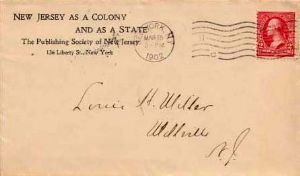 NEW JERSEY AS A COLONY
AND AS A STATE
The Publishing Society of New Jersey
136 Liberty St., New York
YORK, N.Y.
MAR
1902
Louis H. Miller
Millville
N. J.